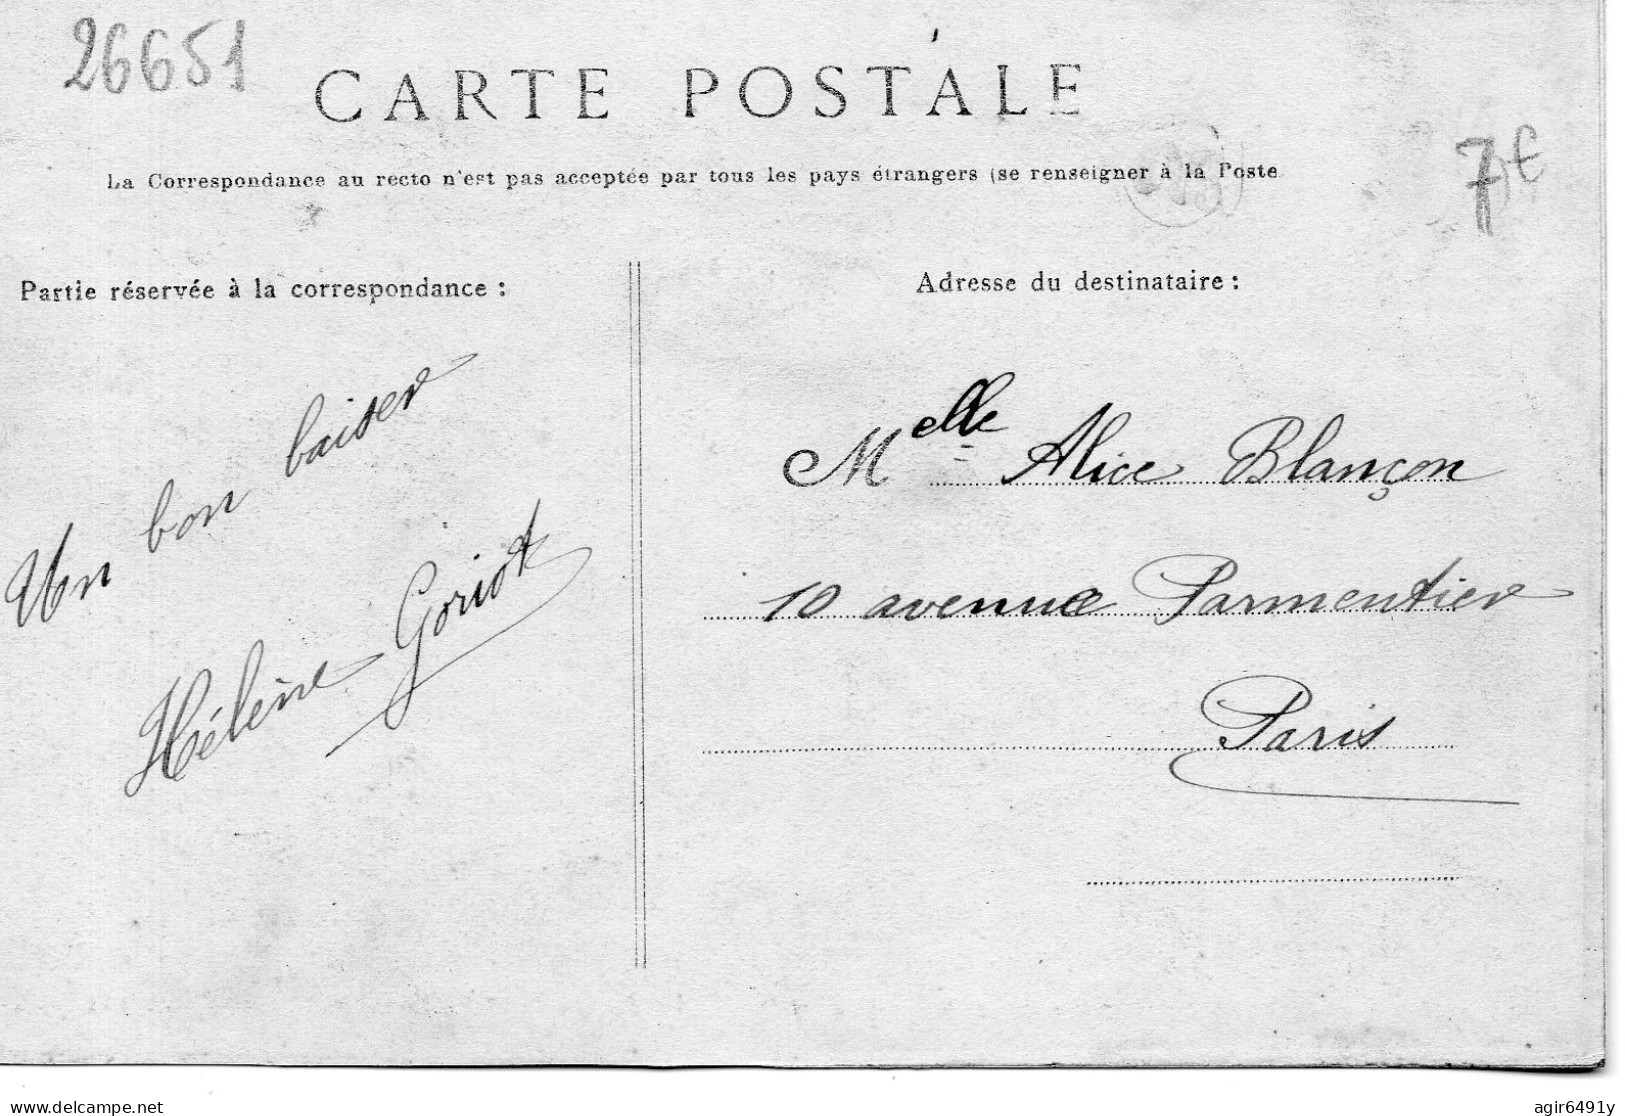 26651
CARTE POSTALE
7€
La Correspondance au recto n'est pas acceptée par tous les pays étrangers (se renseigner à la Poste
Partie réservée à la correspondance :
Un bon baiser
Hélène Goriot
Adresse du destinataire :
Melle Alice Blançon
10 avenue Parmentier
Paris
www.delcampe.net
agir6491y